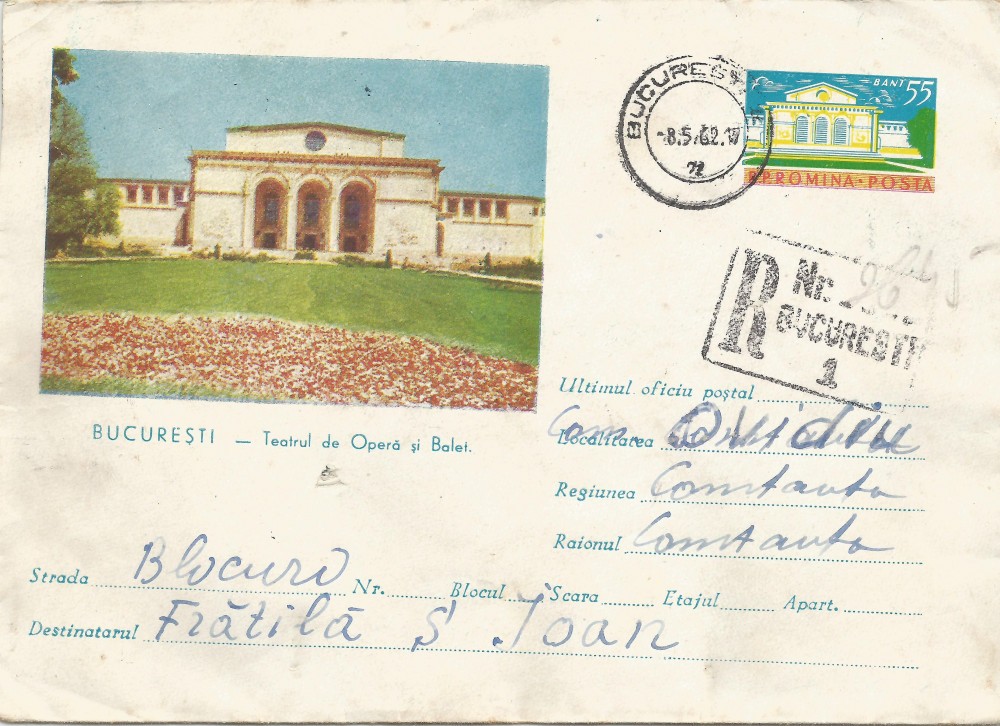 BUCUREȘTI
-8.5.62.17
BANI 55
R.P.ROMINA-POSTA
R Nr. 26
BUCURESTI
1
BUCUREȘTI — Teatrul de Operă și Balet.
Ultimul oficiu poștal
Localitatea Com Ovidiu
Regiunea Constanta
Raionul Constanta
Strada Blocuri Nr. Blocul Scara Etajul Apart.
Destinatarul Frătilă Ș Ioan